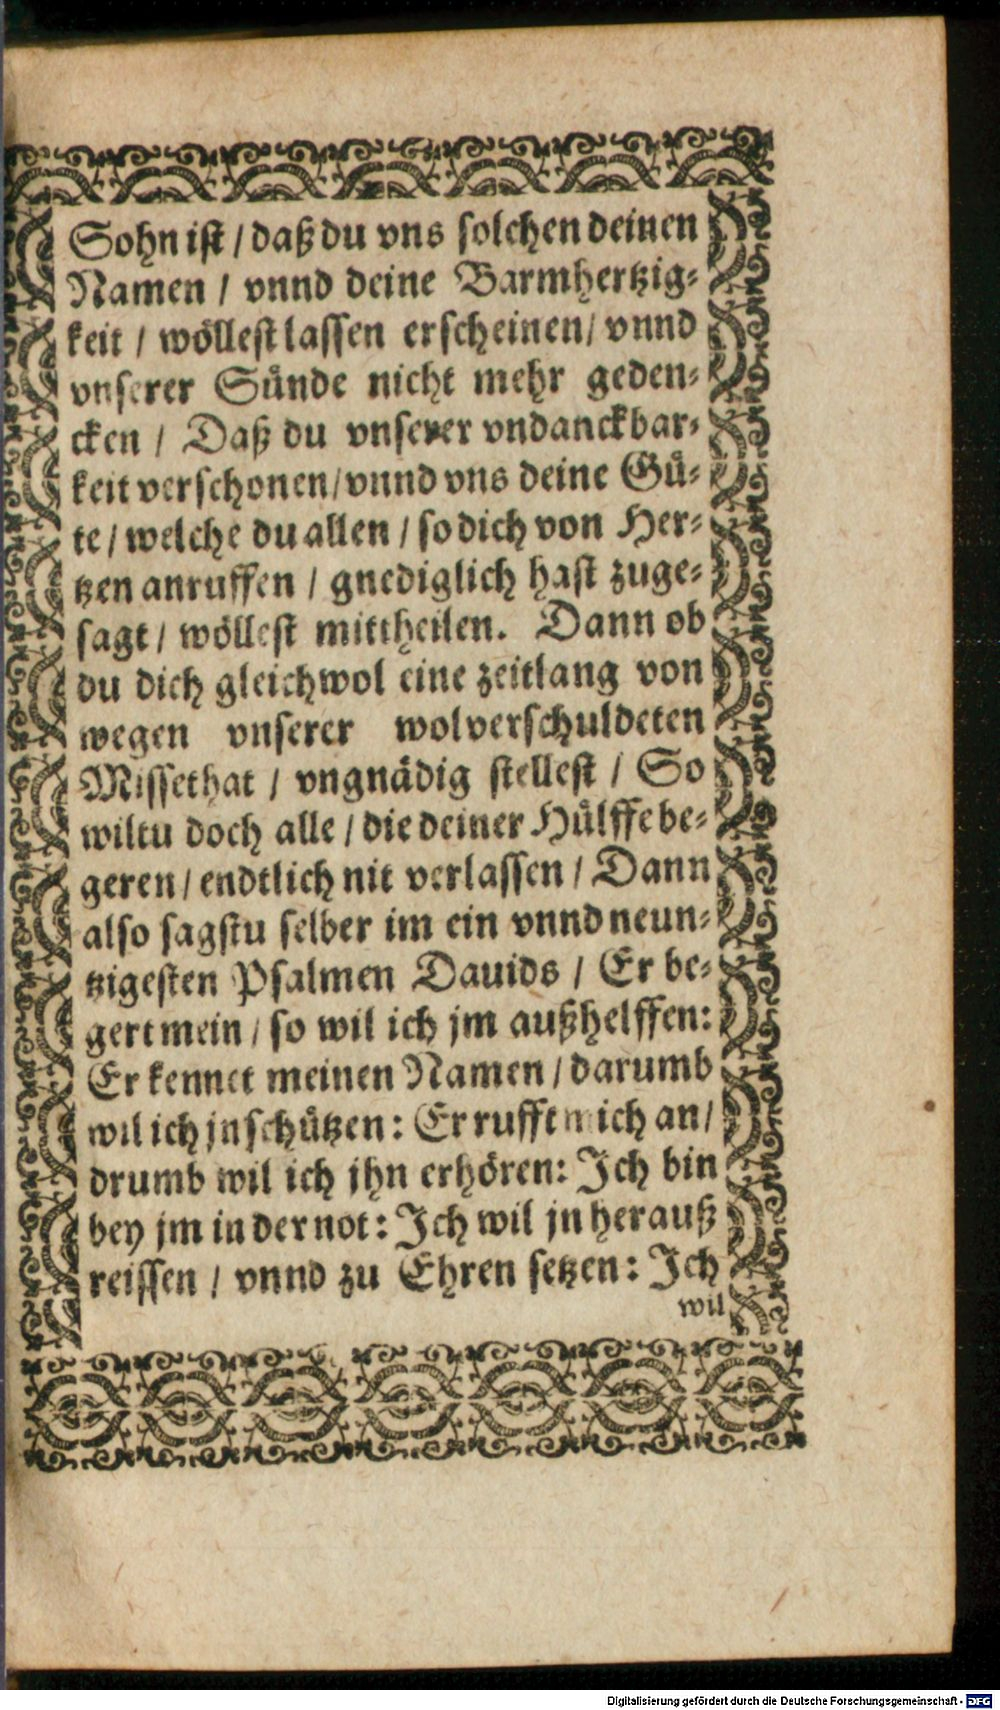 Sohn ist / daß du vns solchen deinen
Namen / vnnd deine Barmhertzig-
keit / wöllest lassen erscheinen / vnnd
vnserer Sünde nicht mehr geden-
cken / Daß du vnserer vndanckbar-
keit verschonen / vnnd vns deine Gü-
te / welche du allen / so dich von Her-
tzen anruffen / gnediglich hast zuge-
sagt / wöllest mittheilen. Dann ob
du dich gleichwol eine zeitlang von
wegen vnserer wolverschuldeten
Missethat / vngnädig stellest / So
wiltu doch alle / die deiner Hülffe be-
geren / endtlich nit verlassen / Dann
also sagstu selber im ein vnnd neun-
tzigesten Psalmen Dauids / Er be-
gert mein / so wil ich jm außhelffen:
Er kennet meinen Namen / darumb
wil ich jn schützen: Er rufft mich an /
drumb wil ich jhn erhören: Ich bin
bey jm in der not: Ich wil jn herauß
reissen / vnnd zu Ehren setzen: Ich
wil
Digitalisierung gefördert durch die Deutsche Forschungsgemeinschaft - DFG